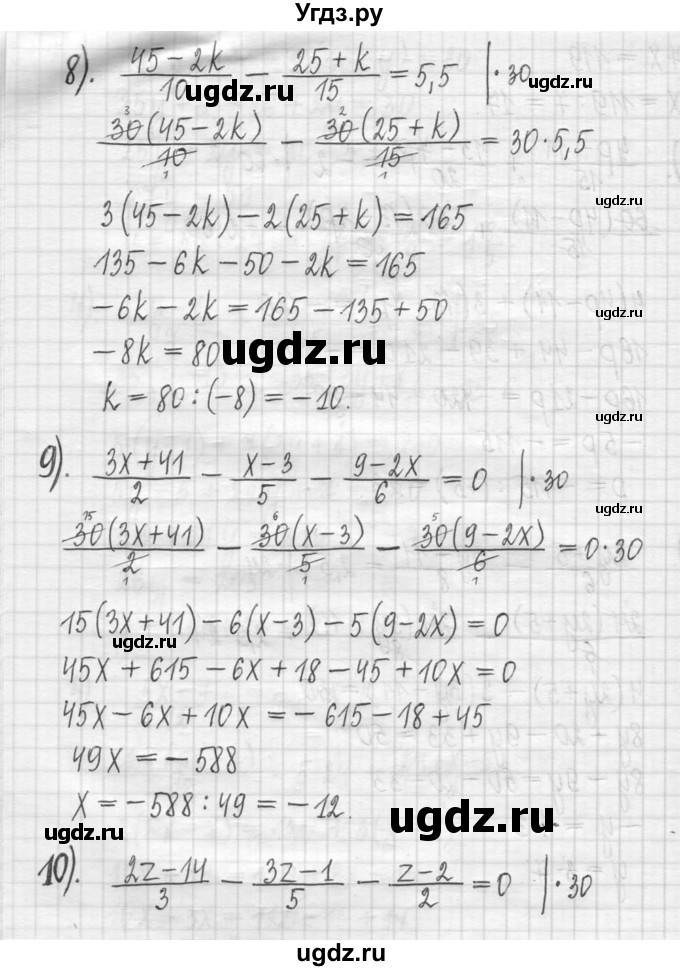 Угдз.ру
8). (45-2k)/10 - (25+k)/15 = 5,5 | ·30
ugdz.ru
ugdz.ru
30(45-2k)/10 - 30(25+k)/15 = 30·5,5
3 1 2 1
3(45-2k)-2(25+k)=165
ugdz.ru
135-6k-50-2k=165
-6k-2k=165-135+50
ugdz.ru
-8k=80
ugdz.ru
k=80:(-8)=-10.
9). (3x+41)/2 - (x-3)/5 - (9-2x)/6 = 0 | ·30
ugdz.ru
30(3x+41)/2 - 30(x-3)/5 - 30(9-2x)/6 = 0·30
15 1 6 1 5 1
15(3x+41)-6(x-3)-5(9-2x)=0
ugdz.ru
ugdz.ru
45x+615-6x+18-45+10x=0
45x-6x+10x=-615-18+45
49x=-588
ugdz.ru
x=-588:49=-12.
ugdz.ru
ugdz.ru
10). (2z-14)/3 - (3z-1)/5 - (z-2)/2 = 0 | ·30
ugdz.ru
ugdz.ru